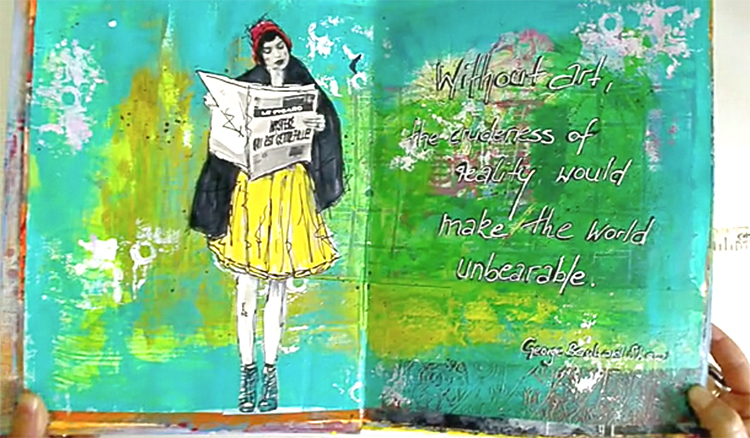 LE FIGARO
MYSTÈRE
QUI EST CETTE FILLE?
Without art,
the crudeness of
reality would
make the world
unbearable.
George Bernard Shaw